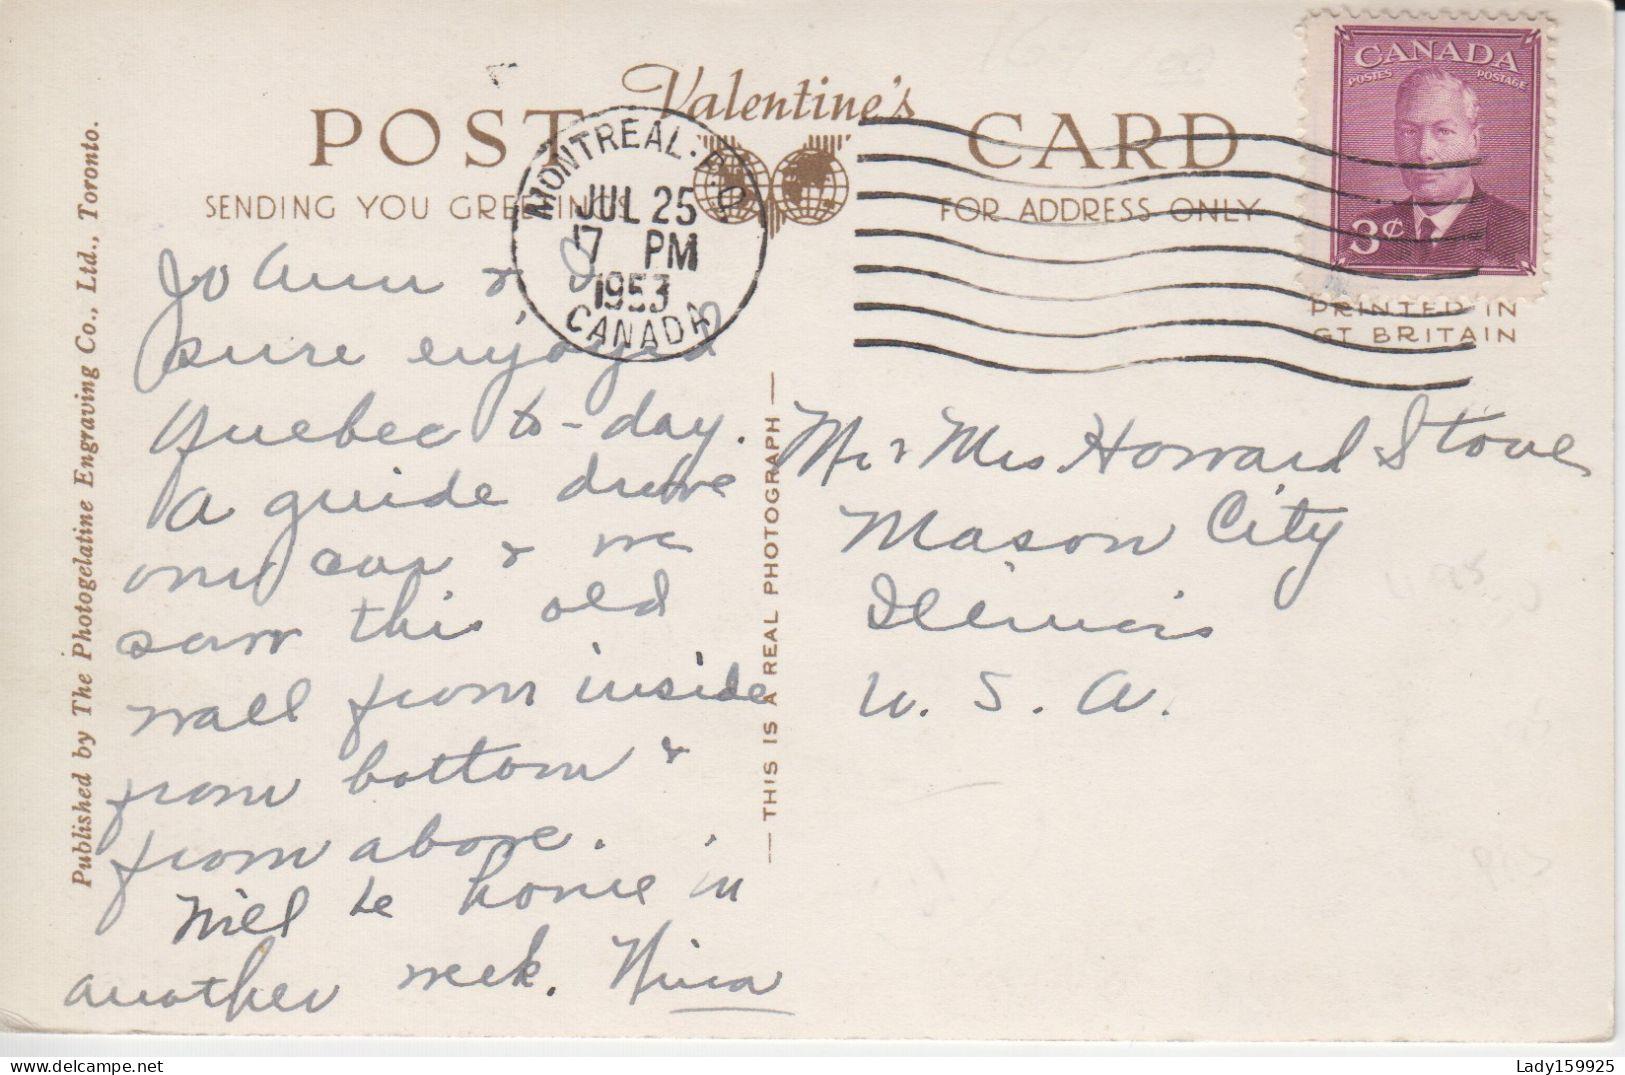 Valentine's
POST CARD
SENDING YOU GREETINGS
FOR ADDRESS ONLY
MONTREAL. P.Q.
JUL 25
17 PM
1953
CANADA
CANADA
POSTES POSTAGE
3¢
PRINTED IN
GT BRITAIN
Published by The Photogelatine Engraving Co., Ltd., Toronto.
Jo Ann & I
sure enjoyed
Quebec to-day.
A guide drove
our car & we
saw this old
wall from inside
from bottom &
from above.
Will be home in
another week. Nina
THIS IS A REAL PHOTOGRAPH
Mr & Mrs Howard Stone
Mason City
Illinois
U. S. A.
Lady159925